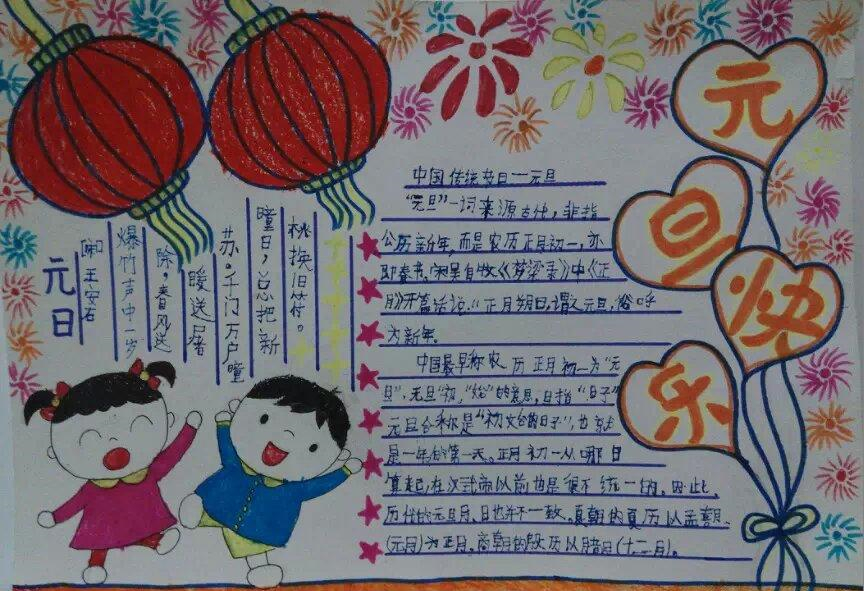 元
旦
快
乐
元日
[宋]王安石
爆竹声中一岁
除,春风送
暖送屠
苏。千门万户曈
曈日,总把新
桃换旧符。
中国传统节日—元旦
"元旦"一词来源古代,非指
公历新年,而是农历正月初一,亦
即春节。宋吴自牧《梦梁录》中《正
月》开篇话说:"正月朔日,谓之元旦,俗呼
为新年。
中国最早称农历正月初一为"元
旦",元旦"初,"始"的意思,旦指"日子"
元旦合称是"初始的日子",也就
是一年的第一天。正月初一从哪日
算起,在汉武帝以前也是很不统一的。因此,
历代的元旦月、日也并不一致。夏朝的夏历以孟喜月
(元月)为正月。商朝的殷历以腊月(十二月)。